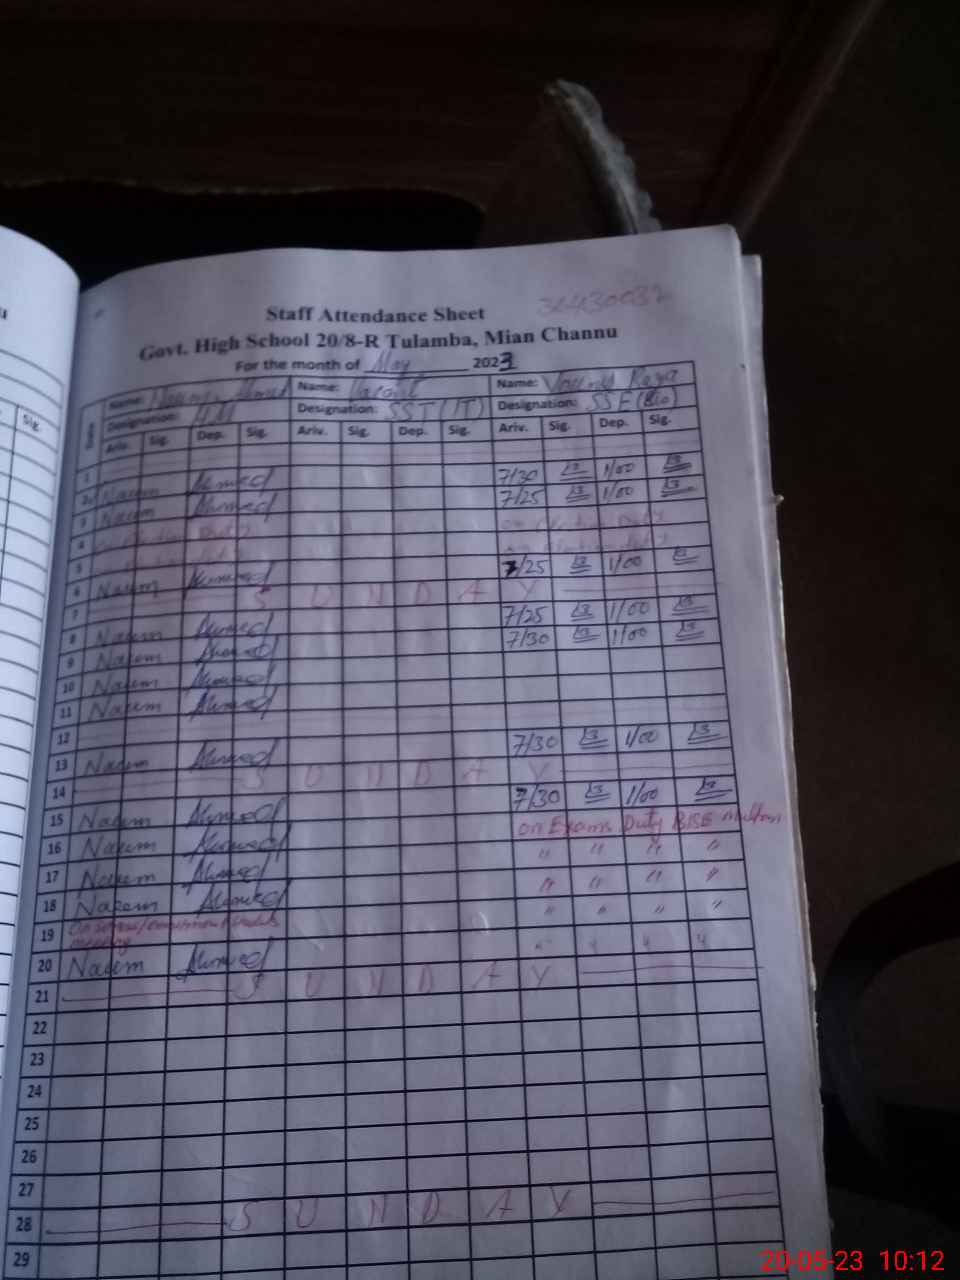 Staff Attendance Sheet
Govt. High School 20/8-R Tulamba, Mian Channu
For the month of May 2023
Name: Ahmed Name: Name: Younis Raza
Designation: Designation: SST (IT) Designation: (Bio)
Ariv. Sig. Dep. Sig. Ariv. Sig. Dep. Sig. Ariv. Sig. Dep. Sig.
Sig.
1 7/30 1/00
2 Naeem Ahmed 7/25 1/00
3 Naeem Ahmed on Election Duty
4 Duty
5 7/25 1/00
6 Naeem Ahmed
SUNDAY
7 7/25 1/00
8 Naeem Ahmed 7/30 1/00
9 Naeem Ahmed
10 Naeem Ahmed
11 Naeem Ahmed
12 7/30 1/00
13 Naeem Ahmed
14 SUNDAY
7/30 1/00
15 Naeem Ahmed on Exams Duty BISE multan
16 Naeem Ahmed " " " "
17 Naeem Ahmed " " " "
18 Naeem Ahmed " " " "
19 On meeting " " " "
20 Naeem Ahmed
21 SUNDAY
22
23
24
25
26
27
28 SUNDAY
29
20-05-23 10:12